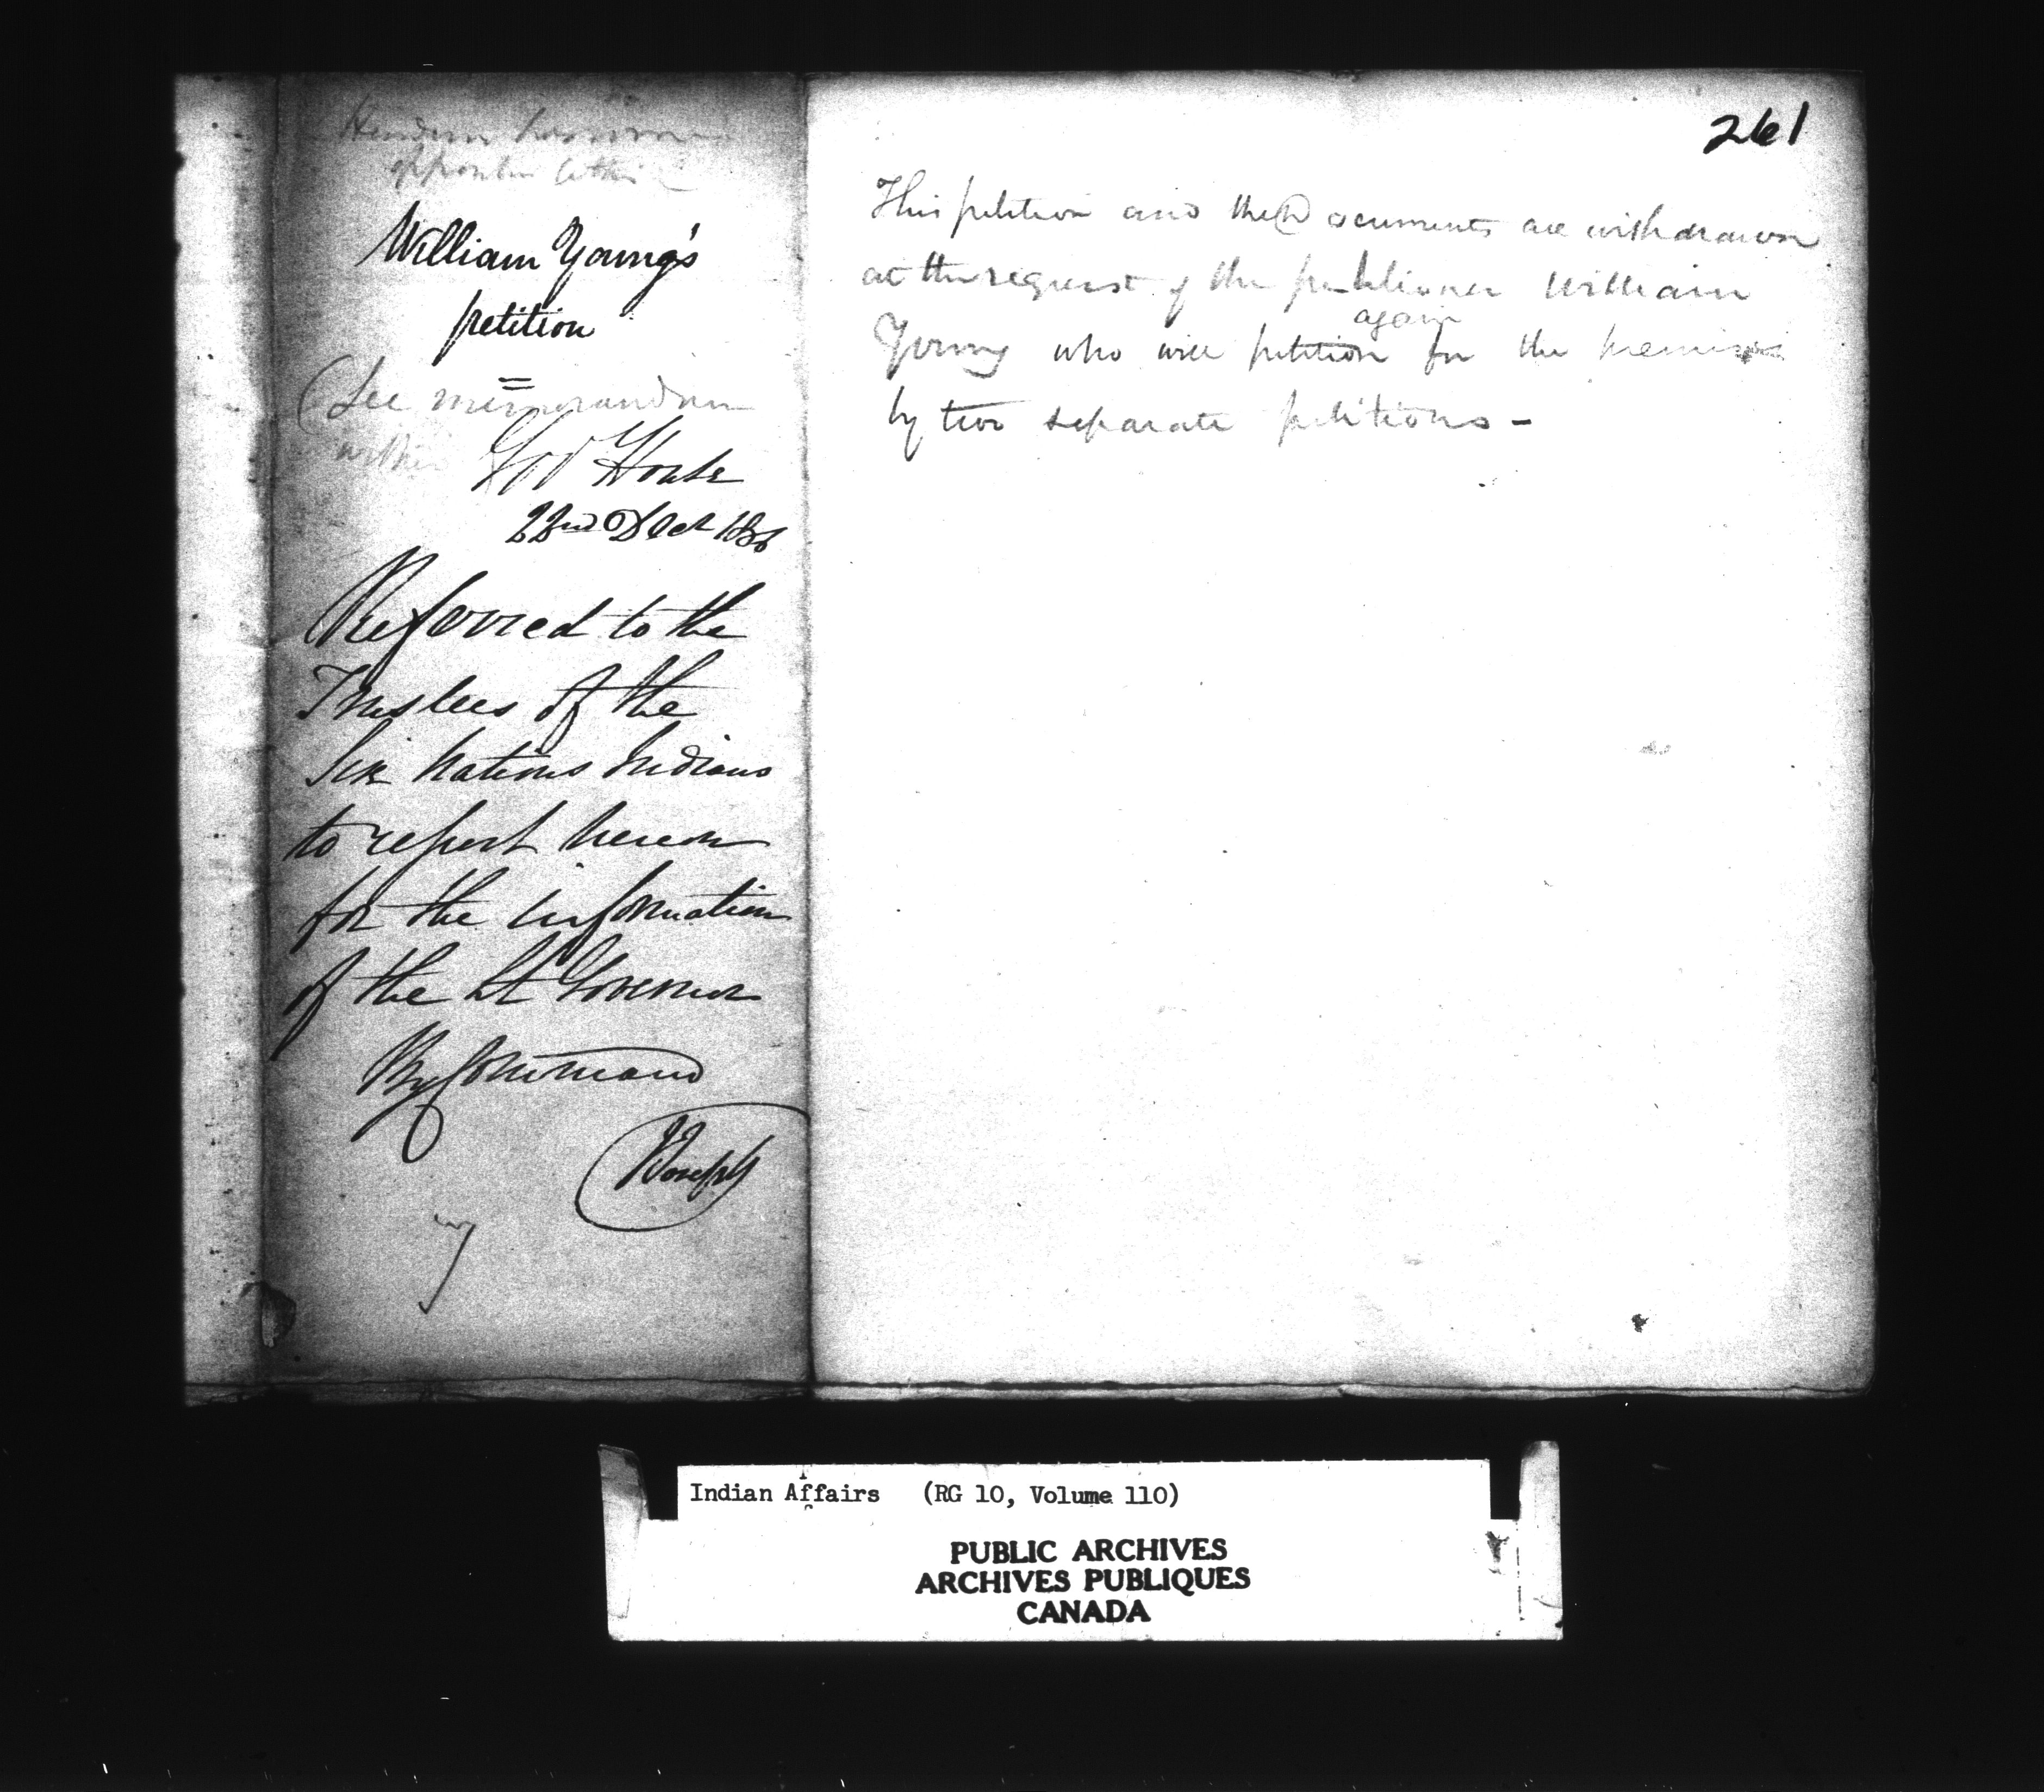 William Young's
petition
(See memorandum
within
Gov House
22nd Dect 1836
Referred to the
Trustees of the
Six Nations Indians
to report hereon
for the information
of the Lt Governor
By Command
J Joseph
261
This petition and the Documents are withdrawn
at the request of the petitioner William
again
Young who will petition for the premises
by two separate petitions -
Indian Affairs (RG 10, Volume 110)
PUBLIC ARCHIVES
ARCHIVES PUBLIQUES
CANADA